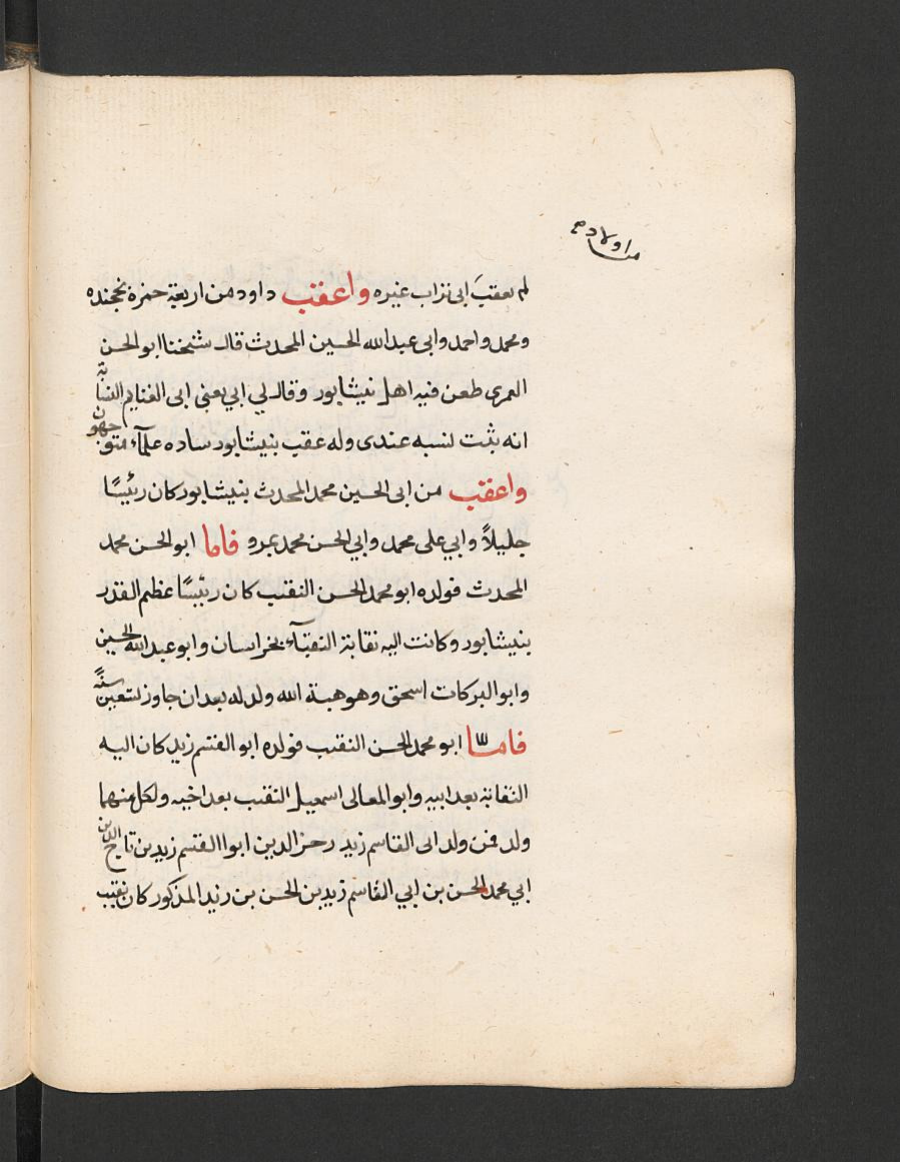 من اولادهم
لم يعقب ابى تراب غيره واعقب داود من اربعة حمزة بخجنده
ومحمد واحمد وابى عبدالله الحسين المحدث قال شيخنا ابو الحسن
العمرى طعن فيه اهل نيشابور وقال لي ابي يعنى ابى الغنايم النسابة
انه يثبت لنسبه عندى وله عقب بنيشابور ساده علمآء متوجهون
واعقب من ابى الحسين محمد المحدث بنيشابور كان رئيسًا
جليلاً وابي على محمد وابي الحسن محمد بمرو فاما ابو الحسن محمد
المحدث فولده ابو محمد الحسن النقيب كان رئيسًا عظيم القدر
بنيشابور وكانت اليه نقابة النقبآء بخراسان وابو عبدالله الحسين
وابو البركات اسحق وهو هبة الله ولد له بعد ان جاوز لتعين سنةً
فامّا ابو محمد الحسن النقيب فولده ابو القسم زيد كان اليه
النقابة بعد ابيه وابو المعالى اسمعيل النقيب بعد اخيه ولكل منهما
ولد فمن ولد ابى القاسم زيد الدين ابو االقسم زيد بن تاج الدين
ابي محمد الحسن بن ابي القاسم زيد بن الحسن بن زيد المذكور كان نقيب